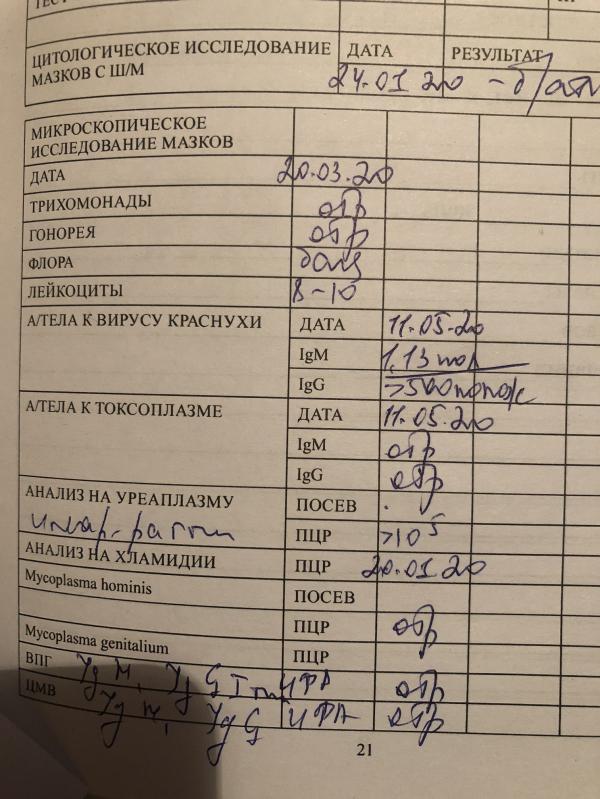 ЦИТОЛОГИЧЕСКОЕ ИССЛЕДОВАНИЕ ДАТА РЕЗУЛЬТАТ
МАЗКОВ С Ш/М 24.01.20 - б/атип
МИКРОСКОПИЧЕСКОЕ
ИССЛЕДОВАНИЕ МАЗКОВ
ДАТА 20.03.20
ТРИХОМОНАДЫ отр
ГОНОРЕЯ отр
ФЛОРА бац
ЛЕЙКОЦИТЫ 8-10
А/ТЕЛА К ВИРУСУ КРАСНУХИ ДАТА 11.05.20
IgM 1,13 пол
IgG >500 полож
А/ТЕЛА К ТОКСОПЛАЗМЕ ДАТА 11.05.20
IgM отр
IgG отр
АНАЛИЗ НА УРЕАПЛАЗМУ ПОСЕВ
ПЦР >10⁵
АНАЛИЗ НА ХЛАМИДИИ ПЦР 20.01.20
Mycoplasma hominis ПОСЕВ
ПЦР отр
Mycoplasma genitalium ПЦР
ВПГ Ig M, Ig G ИФА отр
ЦМВ Ig M, Ig G ИФА отр
21